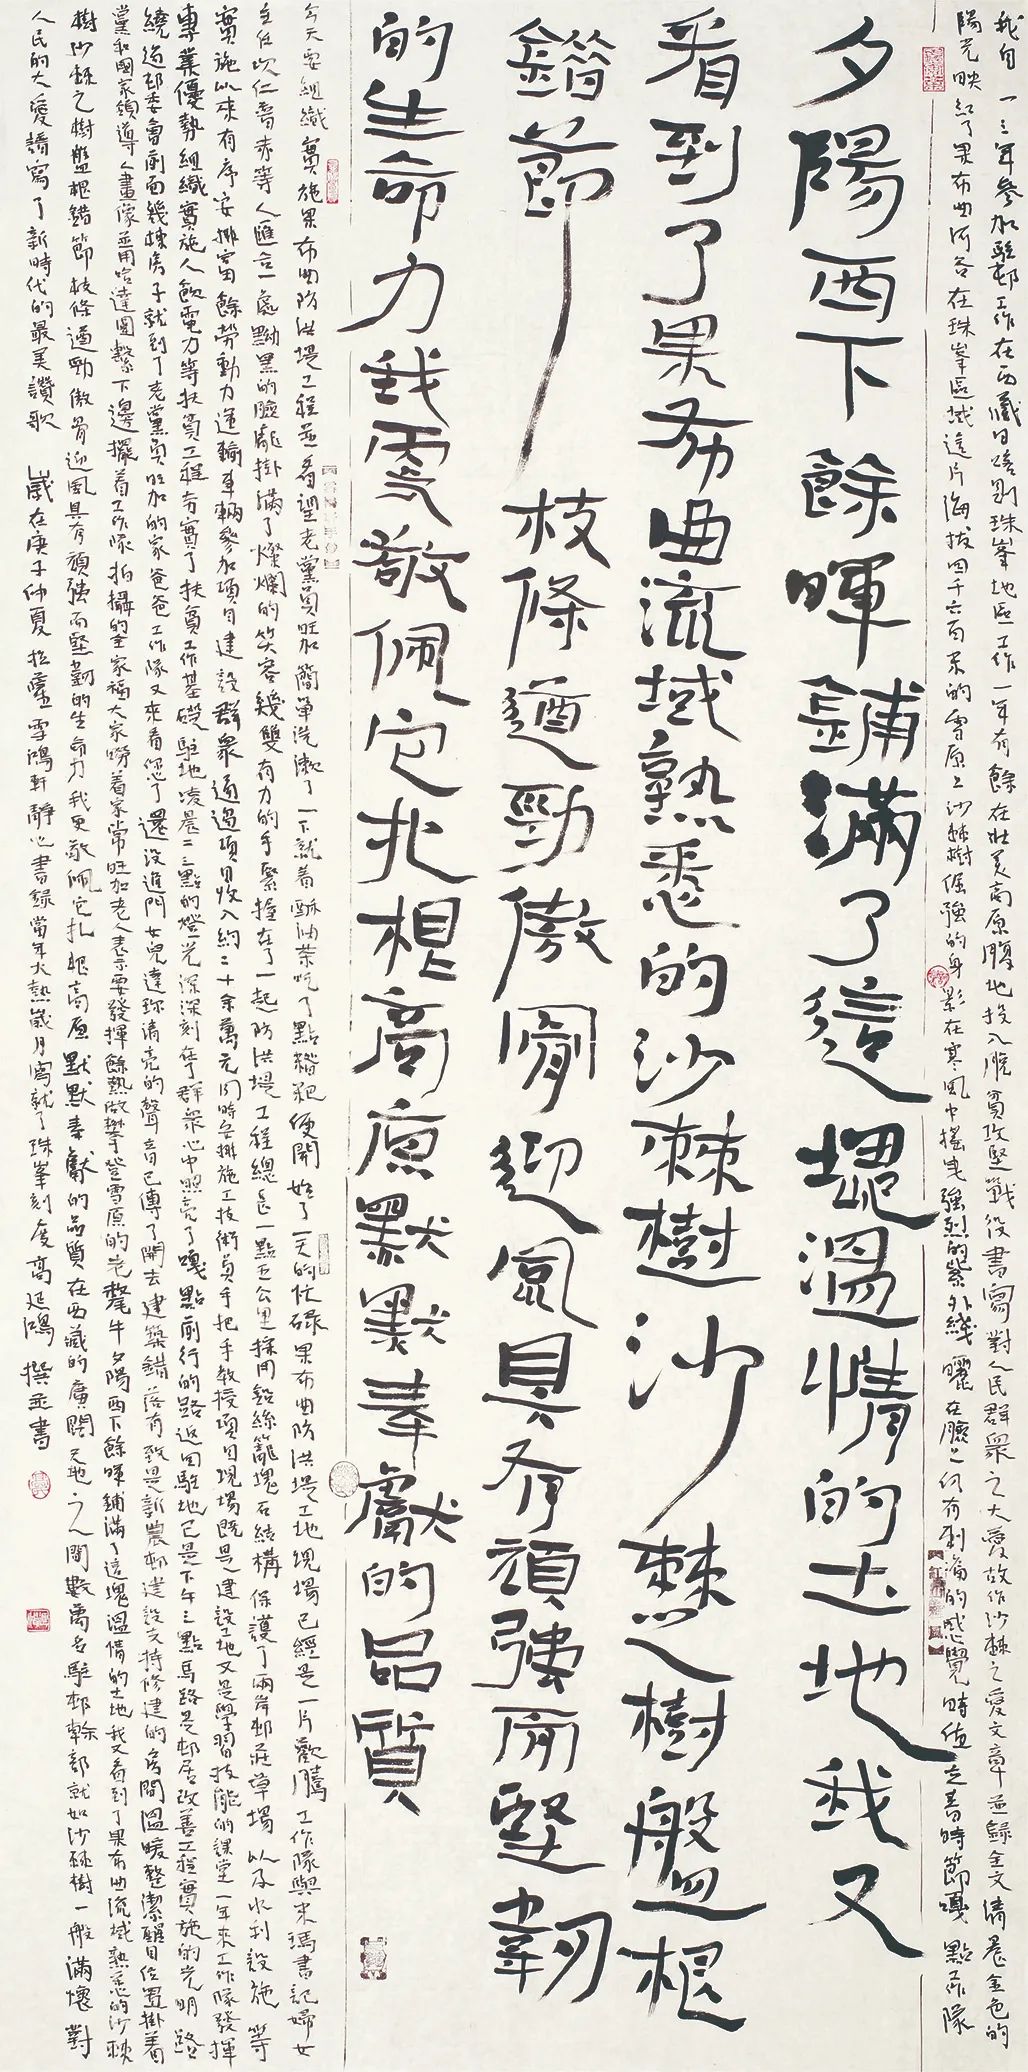 我自一三年參加駐邨工作在西藏日喀則珠峯地區工作一年有餘在壯美高原腹地投入脫貧攻堅戰役書寫對人民群衆之大愛故作沙棘之愛文章並錄全文清晨金色的
陽光映紅了果布曲河谷在珠峯區域這片海拔四千六百米的雪原上沙棘樹倔強的身影在寒風中搖曳強烈的紫外綫曬在臉上仍有刺痛的感覺時值立春時節嘎點工作隊
夕陽西下餘暉鋪滿了這塊溫情的土地我又
看到了果布曲流域熟悉的沙棘樹沙棘之樹盤根
錯節枝條遒勁傲骨迎風具有頑強而堅韌
的生命力我更敬佩它扎根高原默默奉獻的品質
今天要組織實施果布曲防洪堤工程並看望老黨員旺加簡單洗漱了一下就着酥油茶吃了點糌粑便開始了一天的忙碌果布曲防洪堤工地現場已經是一片歡騰工作隊與米瑪書記婦女
主任以仁青赤等人匯合一處黝黑的臉龐掛滿了燦爛的笑容幾雙有力的手緊握在了一起防洪堤工程總長一點五公里採用鉛絲籠塊石結構保護了兩岸邨莊草場以及水利設施等
實施以來有序安排富餘勞動力運輸車輛參加項目建設群衆通過項目收入約二十余萬元同時安排施工技術員手把手教授項目現場既是建設工地又是學習技能的課堂一年來工作隊發揮
專業優勢組織實施人飲電力等扶貧工程夯實了扶貧工作基礎駐地凌晨二三點的燈光深深刻在群衆心中照亮了嘎點前行的路返回駐地已是下午三點馬路是邨居改善工程實施的光明路
繞過邨委會前面幾棟房子就到了老黨員旺加的家爸爸工作隊又來看您了還没進門女兒達珍清亮的聲音已傳了開去建築錯落有致是新農邨建設支持修建的房間溫暖整潔醒目位置掛着
黨和國家領導人畫像並用哈達圍繫下邊擺着工作隊拍攝的全家福大家嘮着家常旺加老人表示要發揮餘熱做攀登雪原的牦牛夕陽西下餘暉鋪滿了這塊溫情的土地我又看到了果布曲流域熟悉的沙棘
樹沙棘之樹盤根錯節枝條遒勁傲骨迎風具有頑強而堅韌的生命力我更敬佩它扎根高原默默奉獻的品質在西藏的廣闊天地之間數萬名駐邨幹部就如沙棘樹一般滿懷對
人民的大愛譜寫了新時代的最美讚歌 歲在庚子仲夏拉薩雪鴻軒靜心書錄當年火熱歲月寫就了珠峯刻度高延鴻撰並書